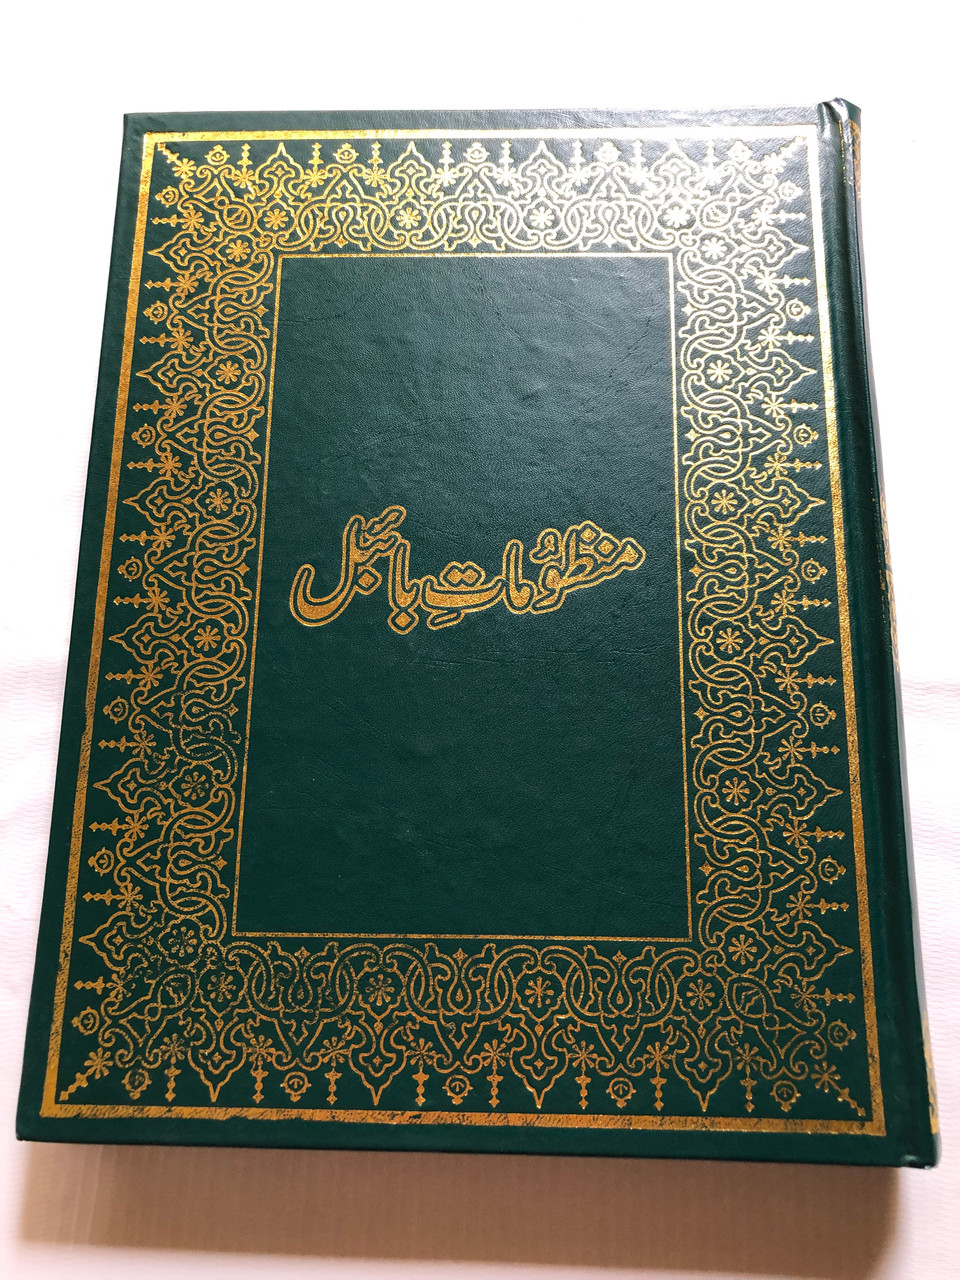 منظوُماتِ بائبل